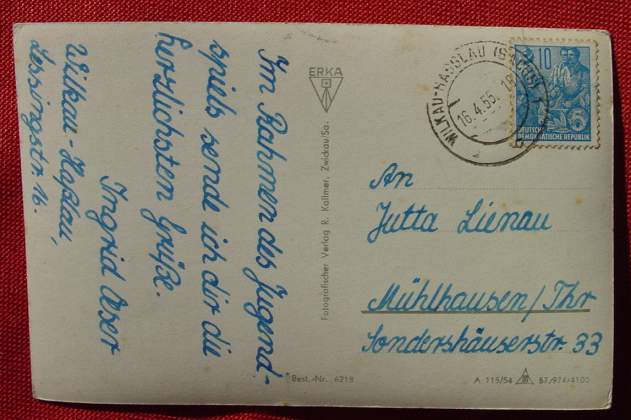 Im Rahmen des Jugend-
spiels sende ich dir die
herzlichsten Grüße.
Ingrid
Wilkau-Haßlau,
Lessingstr. 16.
ERKA
Fotografischer Verlag R. Kallmer, Zwickau/Sa.
Best.-Nr. 6218
WILKAU-HASSLAU (SACHS)
16.4.55
10
DEUTSCHE
DEMOKRATISCHE REPUBLIK
An
Jutta Lienau
Mühlhausen/Thr
Sondershäuserstr. 33
A 115/54 57/974/4100